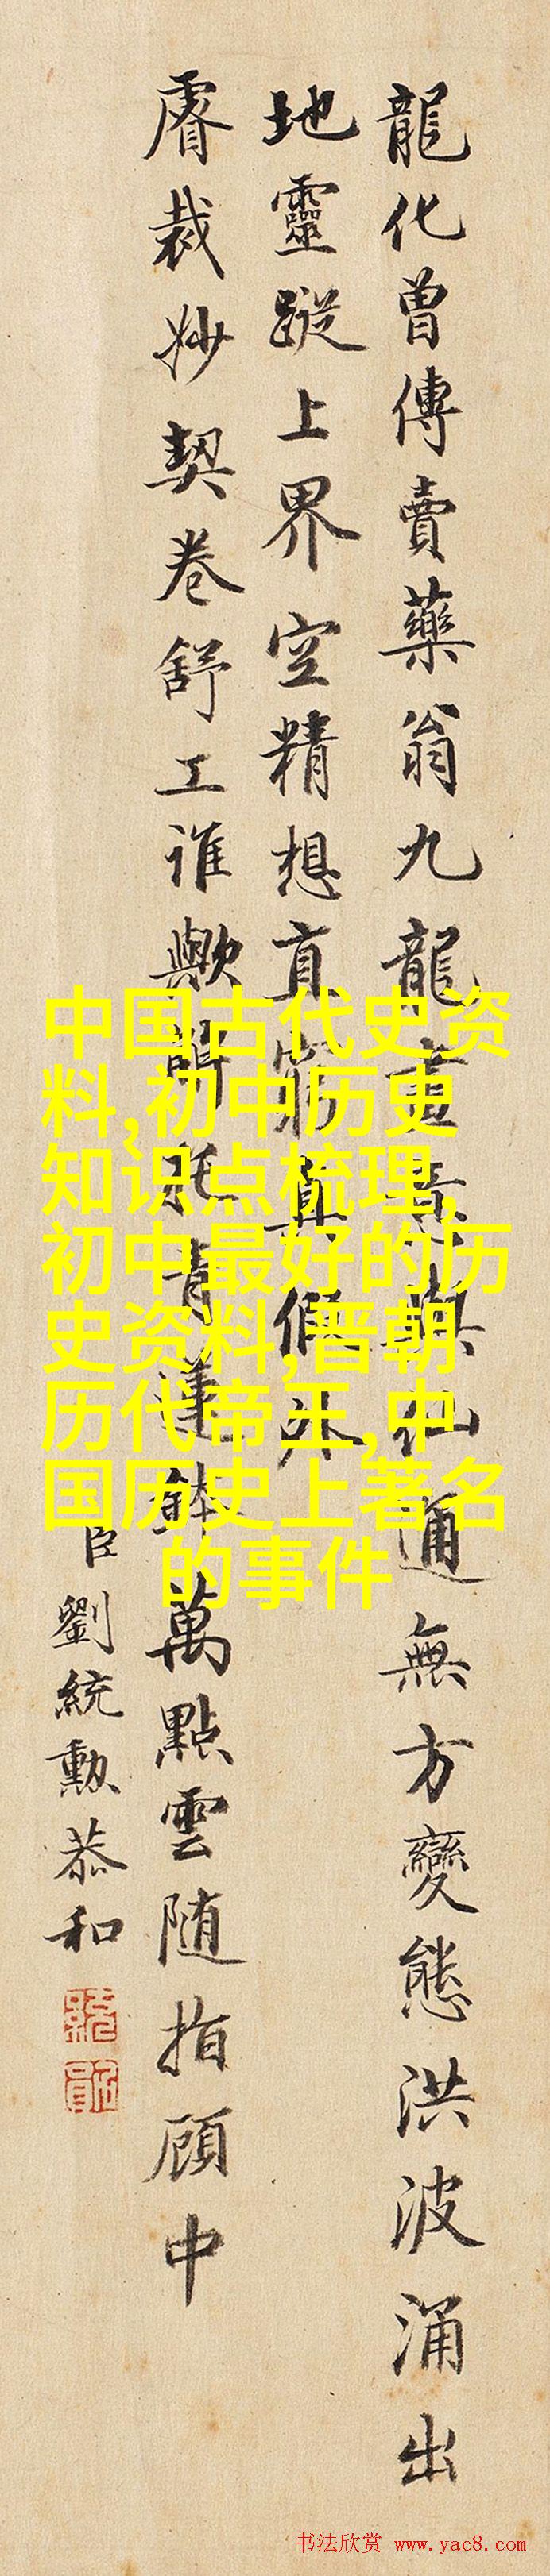 龍化曾傳賣藥翁九龍畫意與仙通無方變態洪波涌出
地靈蹤上界空精想直窮真假外
睿裁妙契卷舒工誰歟詩青蓮鉢萬點雲随指顧中
臣劉統勲恭和
中国古代史资
料,初中历史
知识点梳理,
初中最好的历
史资料,晋朝
历代帝王,中
国历史上著名
的事件
书法欣赏 www.yac8.com